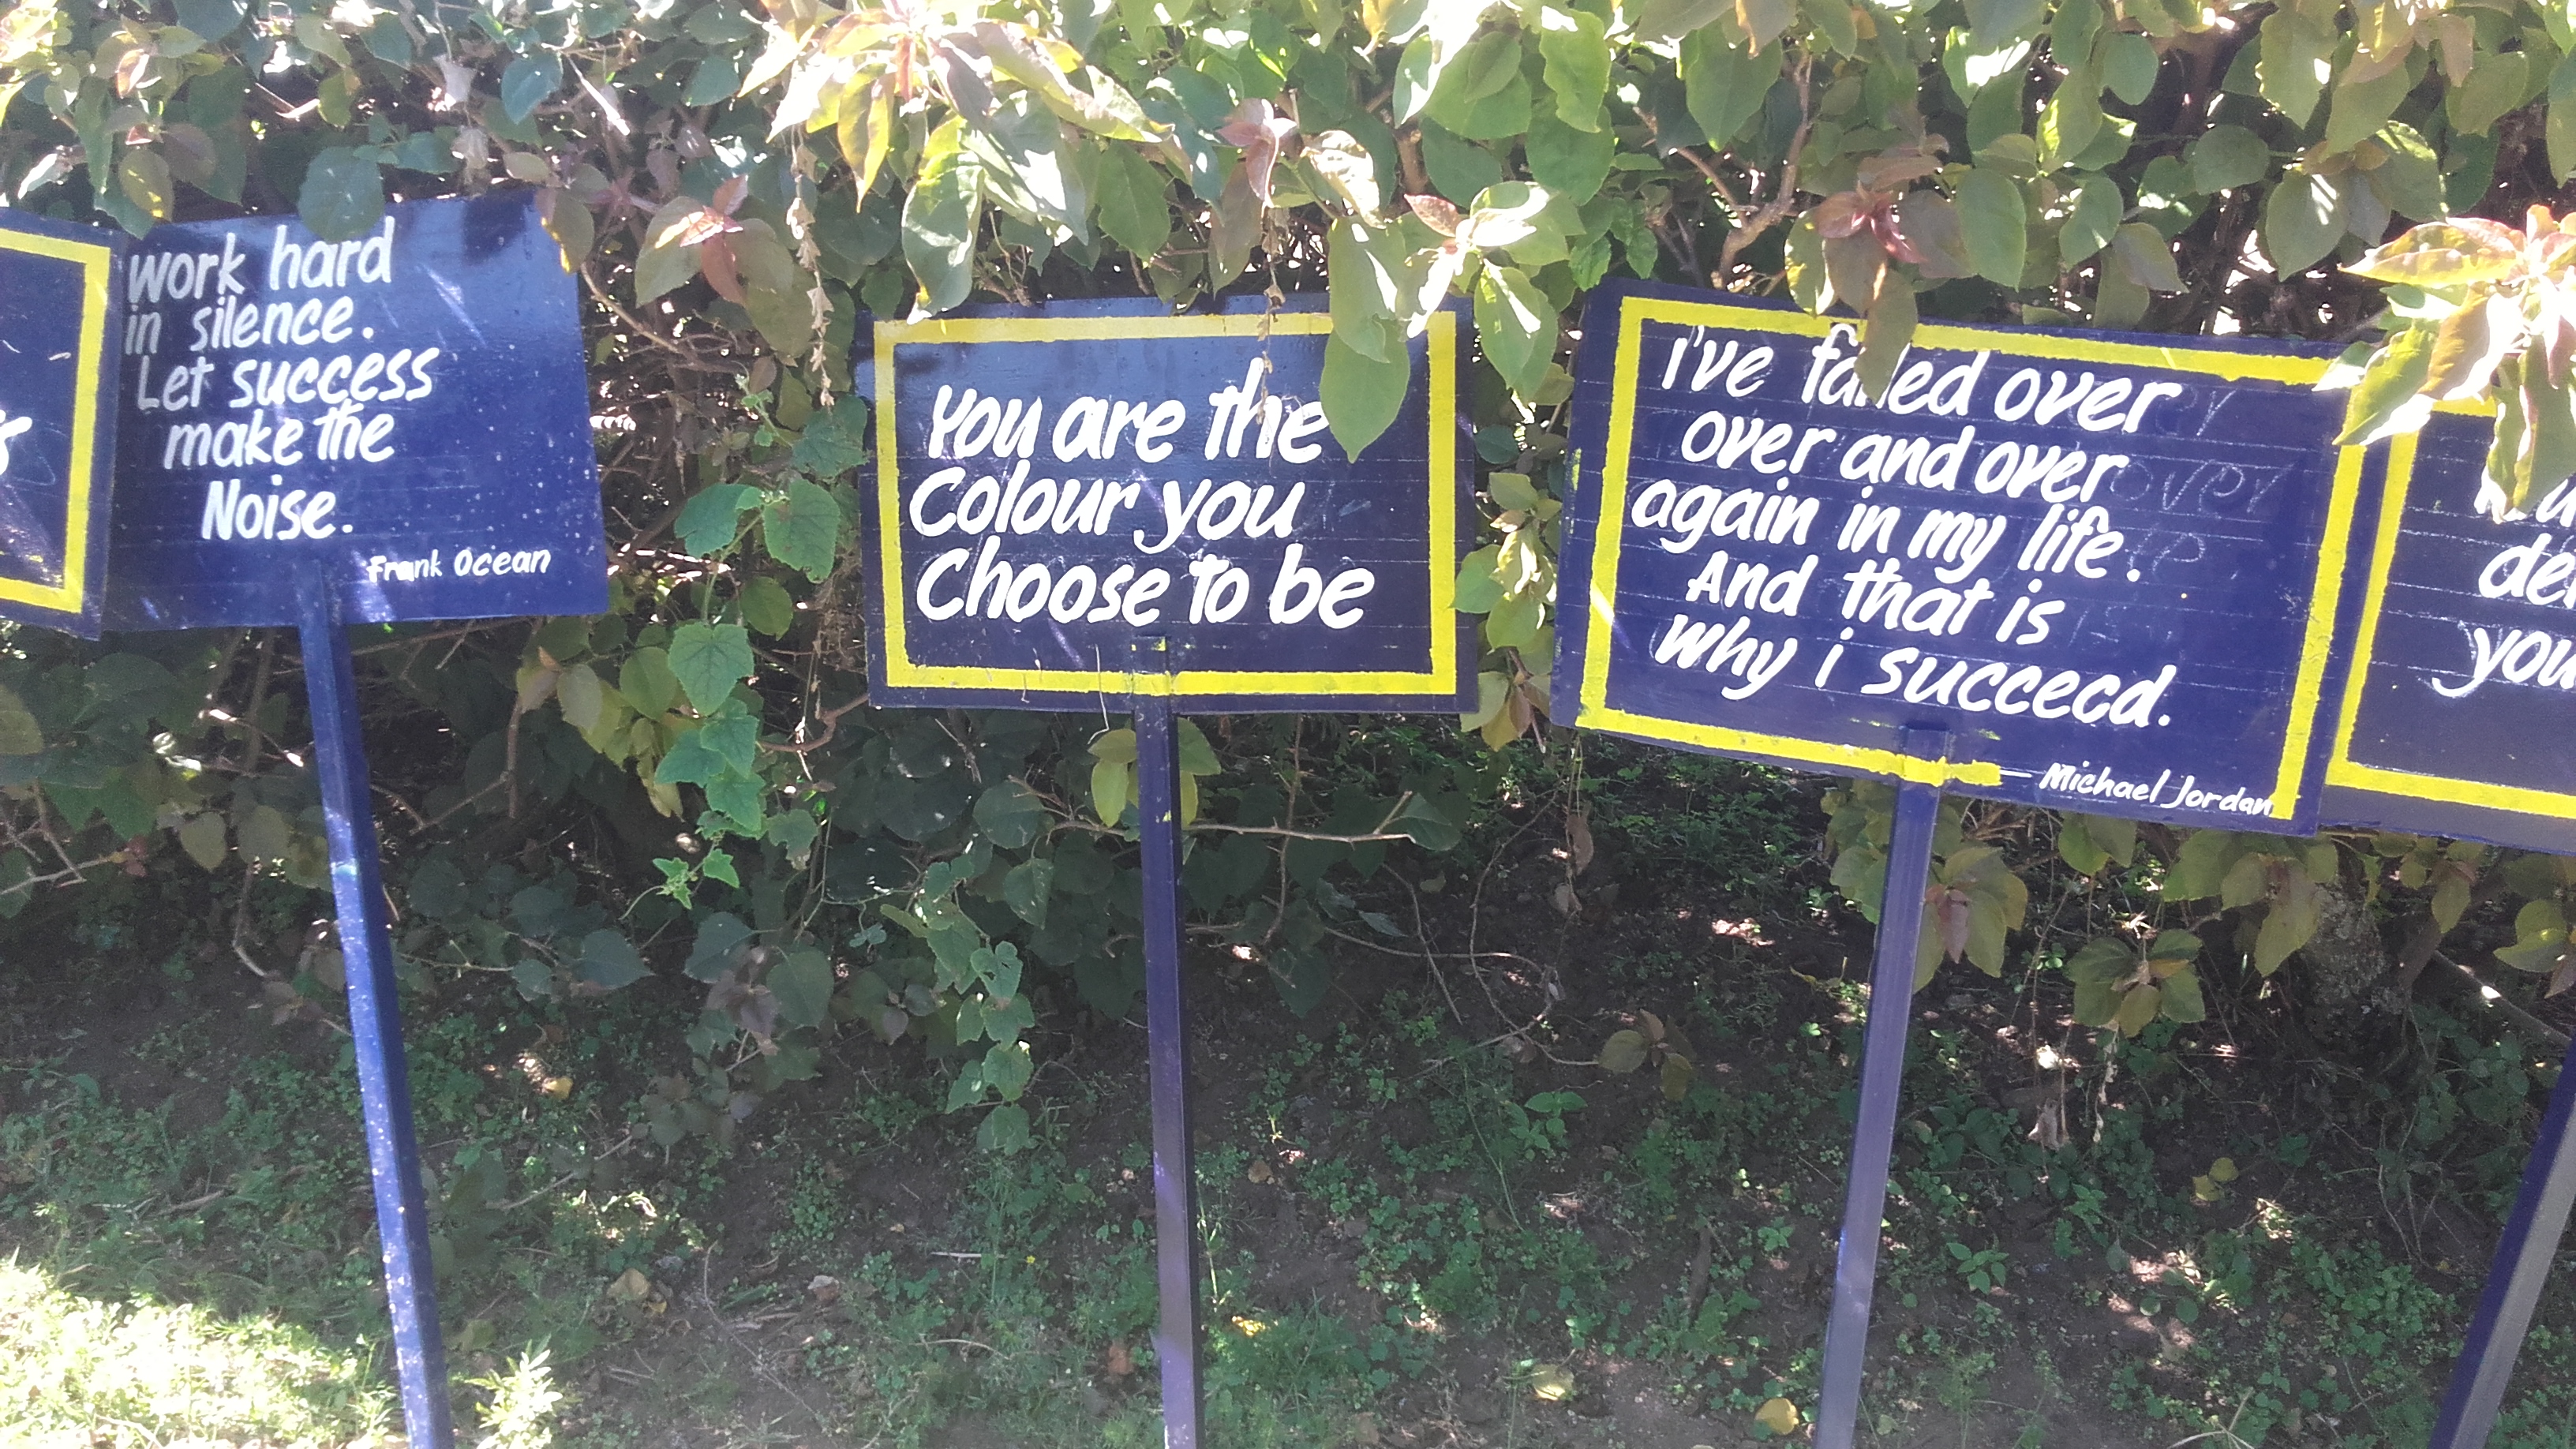 work hard
in silence.
Let success
make the
Noise.
Frank Ocean
You are the
Colour you
Choose to be
i've failed over
over and over
again in my life.
And that is
why i succecd.
— Michael Jordan
you